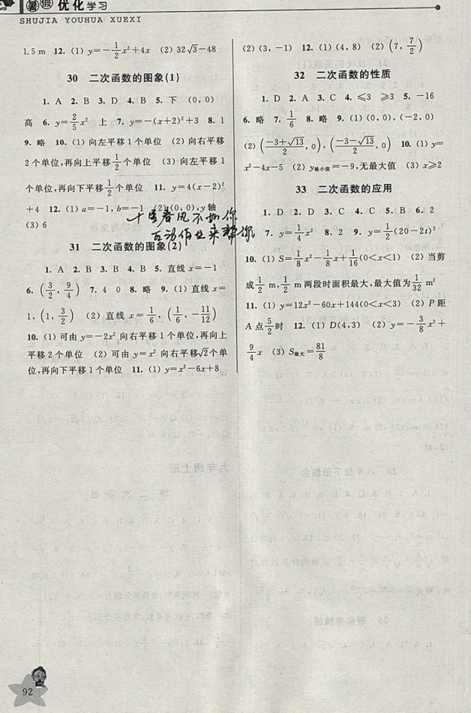 暑假优化学习
SHUJIA YOUHUA XUEXI
1.5 m 12. (1) y=-1/2x²+4x (2) 32√3-48
30 二次函数的图象(1)
1. A 2. B 3. D 4. B 5. 下 (0, 0)
高 6. y=2/5x² 上 7. y=-(x+2)²+3 8. 1
9. 略 10. (1) 向左平移1个单位 (2) 向右平移
2个单位,再向上平移1/2个单位 (3) 向左平移
1个单位,再向下平移1/2个单位 11. y=4(x-2)²
+4 12. (1) a=-1, b=-1 (2) (0,0), y轴
(3) 6
十里春风不如你
互动作业来帮你
31 二次函数的图象(2)
1. A 2. B 3. B 4. B 5. 直线 x=-1
6. (3/2, 9/4) 7. 4 0 8. 略 9. (1) 直线 x=
1, (1, 3/2) (2) 直线 x=1/6, (1/6, -11/12)
10. (1) 可由 y=-2x² 向右平移1个单位,再向上
平移2个单位 (2) 可由 y=x² 向右平移√2个单
位,再向下平移1个单位 11. (1) y=x²-6x+8
(2) (3, -1) 12. (1) (4, 8) (2) (7, 7/2)
32 二次函数的性质
1. D 2. A 3. C 4. ≤3 ≥3 5. -16
6. 略 7. 1/6 8. 略 9. (1) (0,0), (-2,0)
(2) ((-3+√13)/2, 0), ((-3-√13)/2, 0) 10. (1) y=
x²-4x-5 (2) y最小值=-9, 无最大值 (3) x≥2
33 二次函数的应用
1. D 2. D 3. C 4. C 5. B 6. 2
7. y=1/4x² 8. 2 9. y=1/2(20-2t)²
10. (1) S=1/8x²-1/8x+1/16(0<x<1) (2) 当剪
成1/2 m, 1/2 m 两段时面积最大,最大值为1/32 m²
11. (1) y=12x²-60x+144(0<x<3) (2) P距
A点5/2时 12. (1) D(4,3) (2) y=-3/8x²+
9/4x (3) S最大=81/8
92